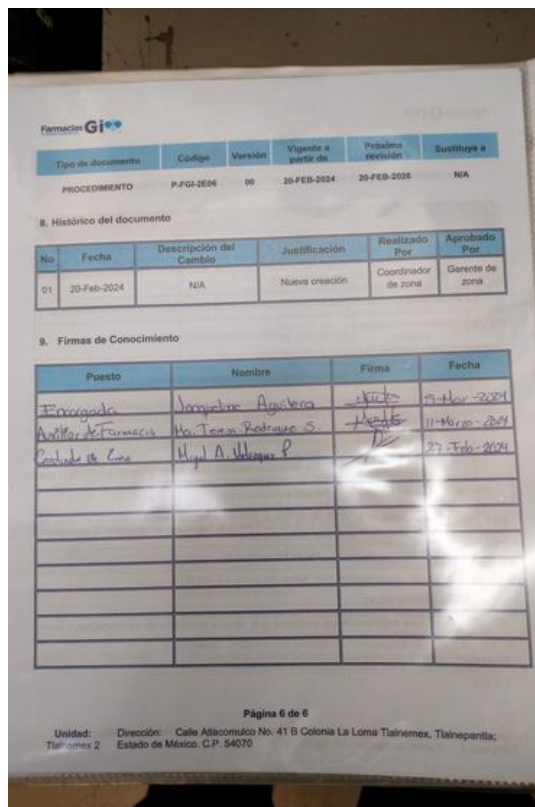 Farmacias Gi
Tipo de documento Código Versión Vigente a partir de Próxima revisión Sustituye a
PROCEDIMIENTO P-FGI-2E06 00 20-FEB-2024 20-FEB-2026 N/A
8. Histórico del documento
No Fecha Descripción del Cambio Justificación Realizado Por Aprobado Por
01 20-Feb-2024 N/A Nueva creación Coordinador de zona Gerente de zona
9. Firmas de Conocimiento
Puesto Nombre Firma Fecha
Encargada Jaqueline Aguilera 5-Mar-2024
Auxiliar de Farmacia Ma. Teresa Rodriguez S. 11-Marzo-2024
Miguel A. Velazquez P 27-Feb-2024
Página 6 de 6
Unidad: Tlalnemex 2 Dirección: Calle Atlacomulco No. 41 B Colonia La Loma Tlalnemex, Tlalnepantla;
Estado de México. C.P. 54070